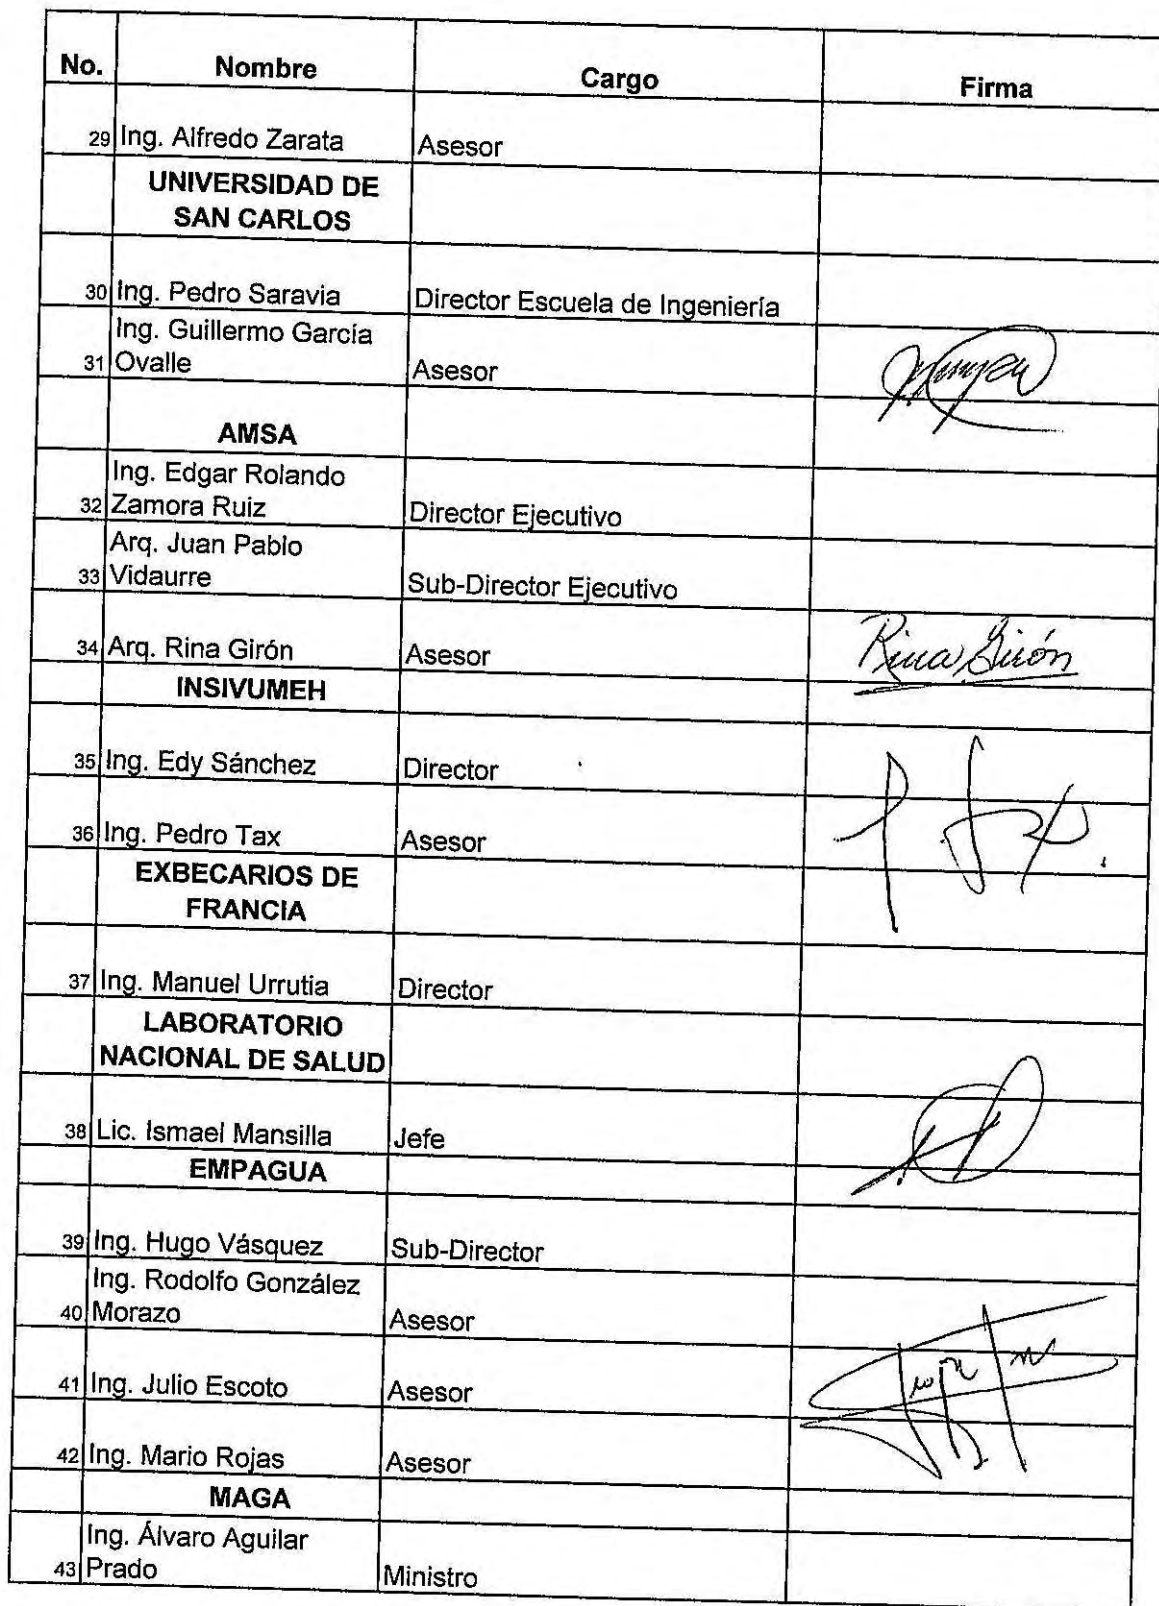 No. Nombre Cargo Firma
29 Ing. Alfredo Zarata Asesor
UNIVERSIDAD DE
SAN CARLOS
30 Ing. Pedro Saravia Director Escuela de Ingeniería
Ing. Guillermo García
31 Ovalle Asesor
AMSA
Ing. Edgar Rolando
32 Zamora Ruiz Director Ejecutivo
Arq. Juan Pablo
33 Vidaurre Sub-Director Ejecutivo
34 Arq. Rina Girón Asesor Rina Girón
INSIVUMEH
35 Ing. Edy Sánchez Director
36 Ing. Pedro Tax Asesor
EXBECARIOS DE
FRANCIA
37 Ing. Manuel Urrutia Director
LABORATORIO
NACIONAL DE SALUD
38 Lic. Ismael Mansilla Jefe
EMPAGUA
39 Ing. Hugo Vásquez Sub-Director
Ing. Rodolfo González
40 Morazo Asesor
41 Ing. Julio Escoto Asesor
42 Ing. Mario Rojas Asesor
MAGA
Ing. Álvaro Aguilar
43 Prado Ministro